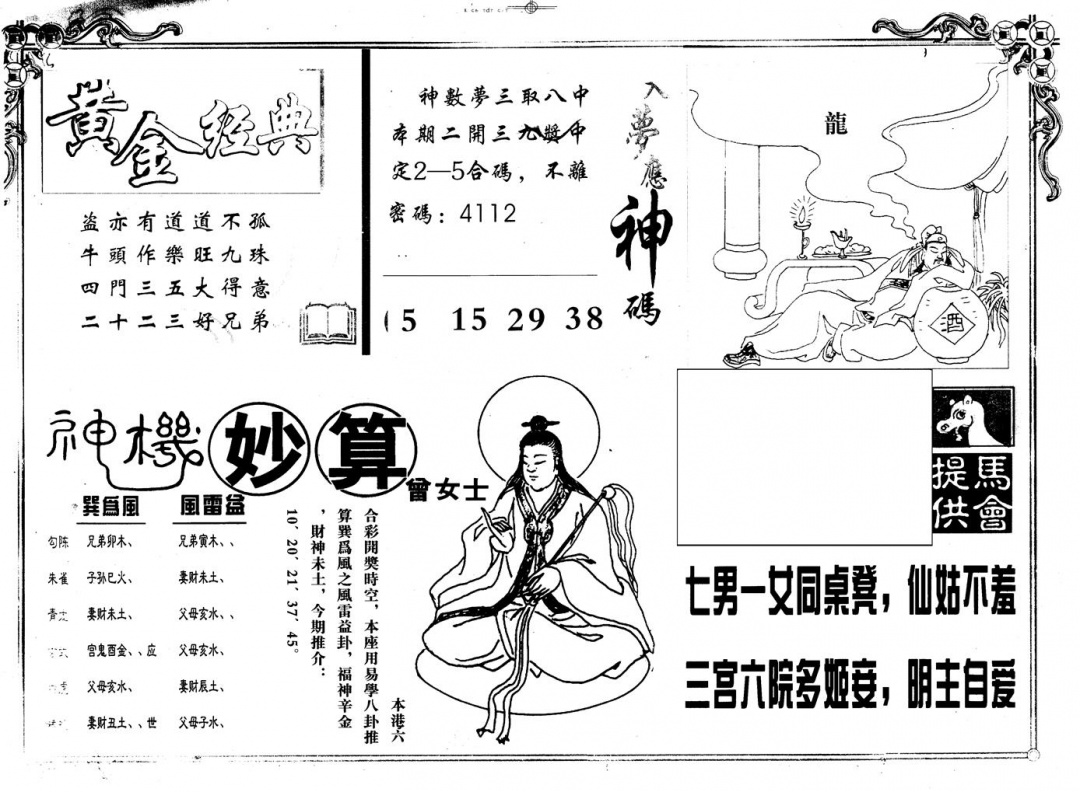 黃金經典
盜亦有道道不孤
牛頭作樂旺九珠
四門三五大得意
二十二三好兄弟
神數夢三取八中
本期二開三九獎中
定2—5合碼，不離
密碼：4112
5 15 29 38
入夢應神碼
龍
酒
神機妙算
曾女士
巽爲風 風雷益
勾陈 兄弟卯木、 兄弟寅木、、
朱雀 子孙巳火、 妻财未土、
青 妻财未土、 父母亥水、、
官鬼酉金、、应 父母亥水、
父母亥水、 妻财辰土、
妻财丑土、、世 父母子水、
本港六
合彩開獎時空，本座用易學八卦推
算巽爲風之風雷益卦，福神辛金
，財神未土，今期推介：
10′20′21′37′45。
馬會
提供
七男一女同桌凳，仙姑不羞
三宫六院多姬妾，明主自爱